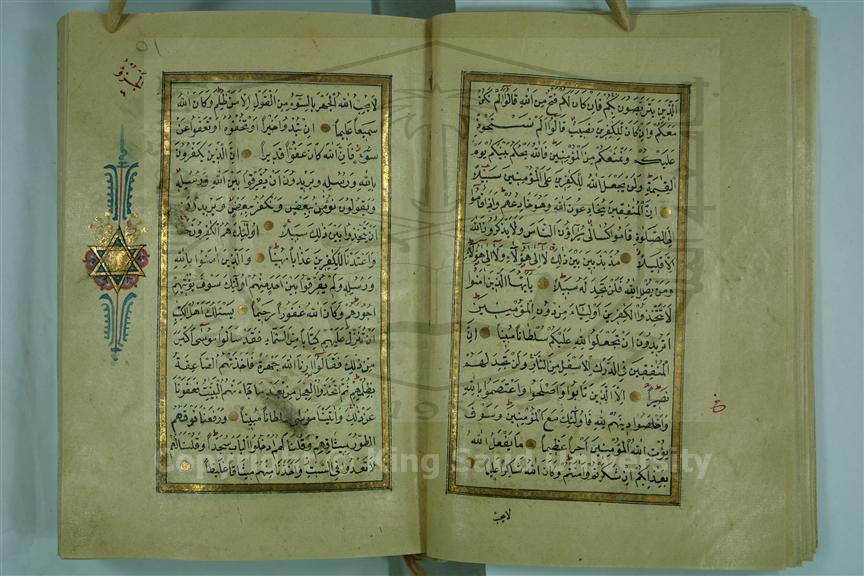 الَّذِينَ يَتَرَبَّصُونَ بِكُمْ فَإِنْ كَانَ لَكُمْ فَتْحٌ مِنَ اللّٰهِ قَالُوا أَلَمْ نَكُنْ
مَعَكُمْ وَإِنْ كَانَ لِلْكٰفِرِينَ نَصِيبٌ قَالُوا أَلَمْ نَسْتَحْوِذْ
عَلَيْكُمْ وَنَمْنَعْكُمْ مِنَ الْمُؤْمِنِينَ فَاللّٰهُ يَحْكُمُ بَيْنَكُمْ يَوْمَ
الْقِيٰمَةِ وَلَنْ يَجْعَلَ اللّٰهُ لِلْكٰفِرِينَ عَلَى الْمُؤْمِنِينَ سَبِيلًا
إِنَّ الْمُنٰفِقِينَ يُخَادِعُونَ اللّٰهَ وَهُوَ خَادِعُهُمْ وَإِذَا قَامُوا
إِلَى الصَّلٰوةِ قَامُوا كُسَالٰى يُرَاؤُنَ النَّاسَ وَلَا يَذْكُرُونَ اللّٰهَ
إِلَّا قَلِيلًا مُذَبْذَبِينَ بَيْنَ ذٰلِكَ لَا إِلٰى هٰؤُلَاءِ وَلَا إِلٰى هٰؤُلَاءِ
وَمَنْ يُضْلِلِ اللّٰهُ فَلَنْ تَجِدَ لَهُ سَبِيلًا يَا أَيُّهَا الَّذِينَ اٰمَنُوا
لَا تَتَّخِذُوا الْكٰفِرِينَ أَوْلِيَاءَ مِنْ دُونِ الْمُؤْمِنِينَ
أَتُرِيدُونَ أَنْ تَجْعَلُوا لِلّٰهِ عَلَيْكُمْ سُلْطَانًا مُبِينًا إِنَّ
الْمُنٰفِقِينَ فِي الدَّرْكِ الْأَسْفَلِ مِنَ النَّارِ وَلَنْ تَجِدَ لَهُمْ
نَصِيرًا إِلَّا الَّذِينَ تَابُوا وَأَصْلَحُوا وَاعْتَصَمُوا بِاللّٰهِ
وَأَخْلَصُوا دِينَهُمْ لِلّٰهِ فَأُولٰئِكَ مَعَ الْمُؤْمِنِينَ وَسَوْفَ
يُؤْتِ اللّٰهُ الْمُؤْمِنِينَ أَجْرًا عَظِيمًا مَا يَفْعَلُ اللّٰهُ
بِعَذَابِكُمْ إِنْ شَكَرْتُمْ وَاٰمَنْتُمْ وَكَانَ اللّٰهُ شَاكِرًا عَلِيمًا
لا يحب
٥١
لَا يُحِبُّ اللّٰهُ الْجَهْرَ بِالسُّوءِ مِنَ الْقَوْلِ إِلَّا مَنْ ظُلِمَ وَكَانَ اللّٰهُ
سَمِيعًا عَلِيمًا إِنْ تُبْدُوا خَيْرًا أَوْ تُخْفُوهُ أَوْ تَعْفُوا عَنْ
سُوءٍ فَإِنَّ اللّٰهَ كَانَ عَفُوًّا قَدِيرًا إِنَّ الَّذِينَ يَكْفُرُونَ
بِاللّٰهِ وَرُسُلِهِ وَيُرِيدُونَ أَنْ يُفَرِّقُوا بَيْنَ اللّٰهِ وَرُسُلِهِ
وَيَقُولُونَ نُؤْمِنُ بِبَعْضٍ وَنَكْفُرُ بِبَعْضٍ وَيُرِيدُونَ
أَنْ يَتَّخِذُوا بَيْنَ ذٰلِكَ سَبِيلًا أُولٰئِكَ هُمُ الْكٰفِرُونَ حَقًّا
وَأَعْتَدْنَا لِلْكٰفِرِينَ عَذَابًا مُهِينًا وَالَّذِينَ اٰمَنُوا بِاللّٰهِ
وَرُسُلِهِ وَلَمْ يُفَرِّقُوا بَيْنَ أَحَدٍ مِنْهُمْ أُولٰئِكَ سَوْفَ يُؤْتِيهِمْ
أُجُورَهُمْ وَكَانَ اللّٰهُ غَفُورًا رَحِيمًا يَسْـَٔلُكَ أَهْلُ الْكِتٰبِ
أَنْ تُنَزِّلَ عَلَيْهِمْ كِتَابًا مِنَ السَّمَاءِ فَقَدْ سَأَلُوا مُوسٰى أَكْبَرَ
مِنْ ذٰلِكَ فَقَالُوا أَرِنَا اللّٰهَ جَهْرَةً فَأَخَذَتْهُمُ الصَّاعِقَةُ
بِظُلْمِهِمْ ثُمَّ اتَّخَذُوا الْعِجْلَ مِنْ بَعْدِ مَا جَاءَتْهُمُ الْبَيِّنَاتُ فَعَفَوْنَا
عَنْ ذٰلِكَ وَاٰتَيْنَا مُوسٰى سُلْطَانًا مُبِينًا وَرَفَعْنَا فَوْقَهُمُ
الطُّورَ بِمِيثَاقِهِمْ وَقُلْنَا لَهُمُ ادْخُلُوا الْبَابَ سُجَّدًا وَقُلْنَا لَهُمْ
لَا تَعْدُوا فِي السَّبْتِ وَأَخَذْنَا مِنْهُمْ مِيثَاقًا غَلِيظًا
King Saud University